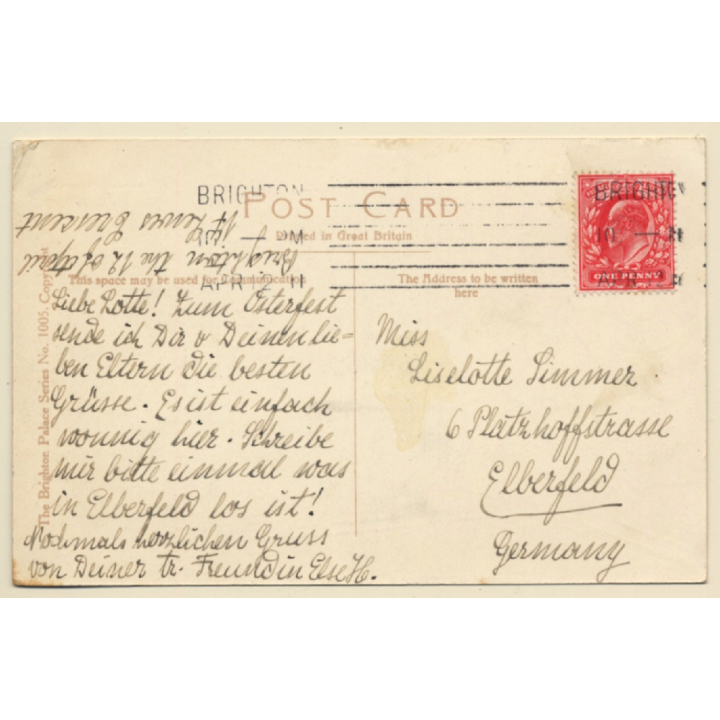 BRIGHTON
POST CARD
Printed in Great Britain
This space may be used for Communication
The Address to be written
here
BRIGHTON
ONE PENNY
The Brighton Palace Series No. 1005. Copyright
Lewes Crescent
Brighton the 12 of April
Liebe Lotte! Zum Osterfest
sende ich Dir u Deinen lie-
ben Eltern die besten
Grüsse. Es ist einfach
wonnig hier. Schreibe
mir bitte einmal was
in Elberfeld los ist!
Nochmals herzlichen Gruss
von Deiner tr. Freundin Else H.
Miss
Liselotte Simmer
6 Platzhoffstrasse
Elberfeld
Germany